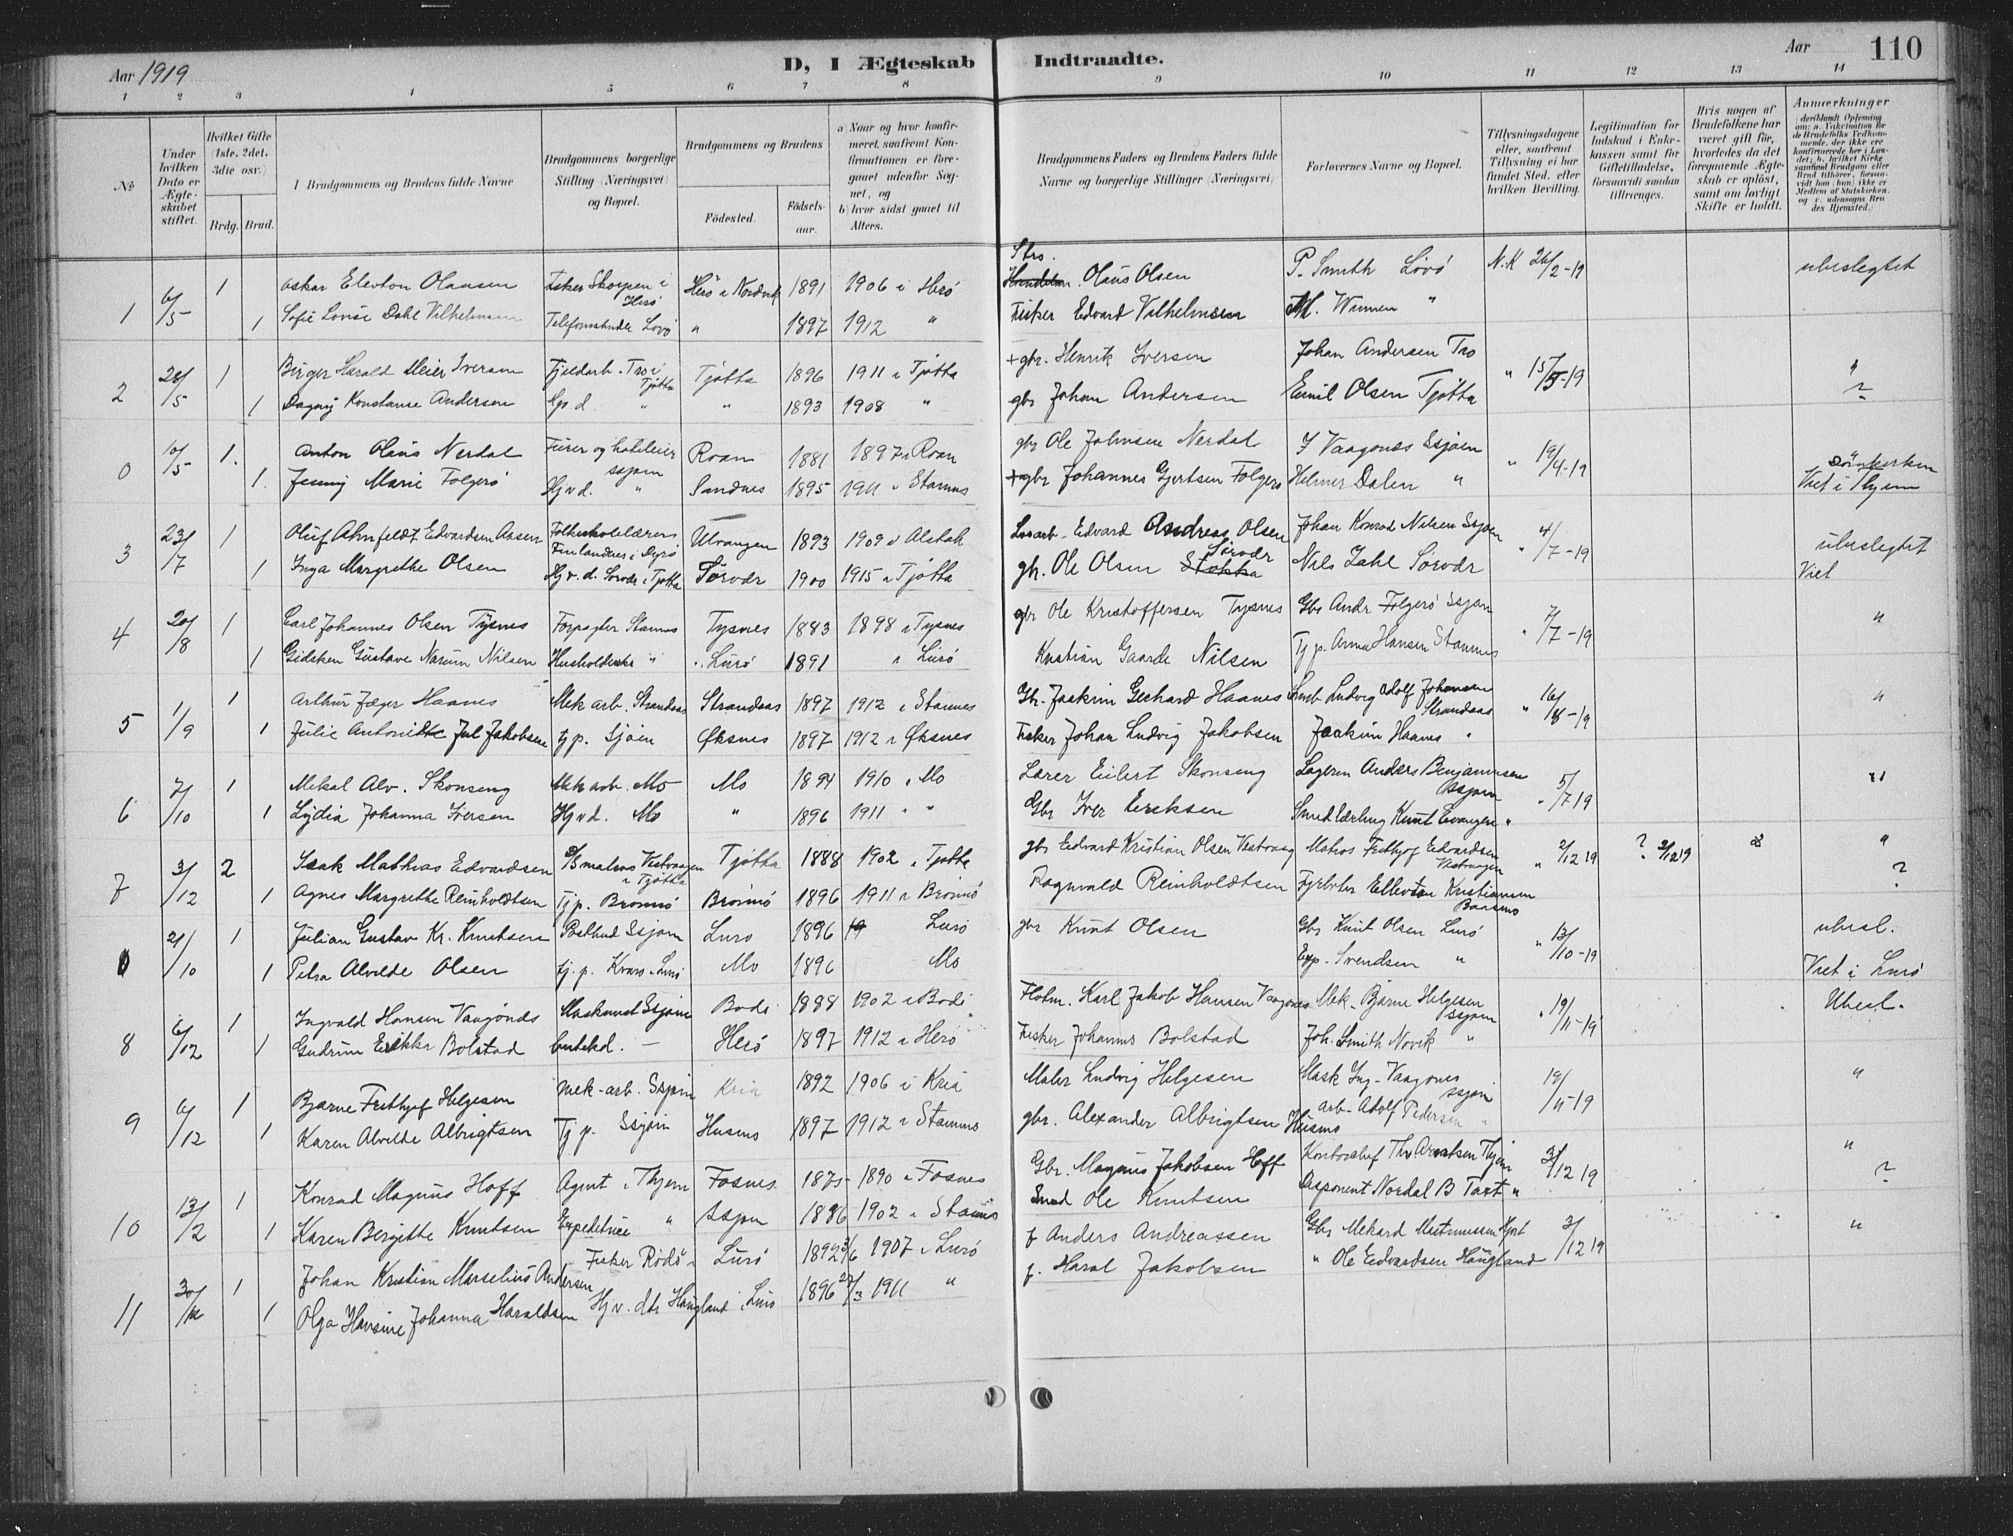 Aar 1919
D, I Ægteskab Indtraadte.
Aar
110
1 2 3 4 5 6 7 8 9 10 11 12 13 14
№
Under hvilken Dato er Ægteskabet stiftet.
Hvilket Gifte (1ste, 2det, 3die osv.)
Brdg. Brud.
Brudgommens og Brudens fulde Navne
Brudgommens borgerlige Stilling (Næringsvei) og Bopæl.
Brudgommens og Brudens
Födested.
Födsels-aar.
a) Naar og hvor konfirmeret, saafremt Konfirmationen er foregaaet udenfor Sognet, og
b) hvor sidst gaaet til Alters.
Brudgommens Faders og Brudens Faders fulde Navne og borgerlige Stillinger (Næringsvei)
Forlovernes Navne og Bopæl.
Tillysningsdagene eller, saafremt Tillysning ei har fundet Sted, efter hvilken Bevilling.
Legitimation for Indskud i Enkekassen samt for Giftetilladelse, forsaavidt saadan tiltrænges.
Hvis nogen af Brudefolkene har været gift før, hvorledes da det foregaaende Ægteskab er oplöst, samt om lovligt Skifte er holdt.
Anmærkninger
1 6/5 1 Oskar Elevton Olausen Fisker Skorpen i Herö Herö i Nordvik 1891 1906 i Herö Olaus Olsen P. Smith Lövö N.K 26/2-19 ubeslegtet
1 Sofie Lovise Dahl Vilhelmsen Lovö " 1897 1912 " Fisker Edvard Vilhelmsen "
2 28/5 1 Birger Harald Meier Iversen Tro i Tjötta Tjötta 1896 1911 i Tjötta + gbr. Henrik Iversen Johan Andersen Tro " 15/5-19 "
1 Dagny Konstanse Andersen " " 1893 1908 " gbr Johan Andersen Emil Olsen Tjötta ?
0 10/5 1. Anton Olaus Nerdal Roan 1881 1897 i Roan gbr Ole Johnsen Nerdal Vaagönes Ssjöen " 19/4-19 "
1. Jenny Marie Folgerö Hjvd. " Sandnes 1895 1911 i Stamnes + gbr Johannes Gjertsen Folgerö Helmer Dalen " Viet i Thjem
3 23/7 1 Oluf Ahnfeldt Edvardsen Aasen Folkeskolelærer Ulvangen 1893 1909 i Alstah Edvard Andreas Olsen Johan Konrad Nilsen Ssjöen " 4/7-19 ubeslegtet
1 Inga Margrethe Olsen Hj v. d. Sørvdr i Tjøtta Sørvdr 1900 1915 i Tjøtta gb. Ole Olsen Stokka Sørvdr Nils Zahl Sørvdr Viet
4 20/8 1 Carl Johannes Olsen Tysnes Forpagter Stamnes Tysnes 1883 1898 i Tysnes gbr Ole Kristoffersen Tysnes Gbr Andr Folgerö Ssjøen " 7/7-19 "
1 Gideken Gustave Narum Nilsen " Lurö 1891 i Lurö Kristian Gaarde Nilsen Tj p. Anna Hansen Stamnes
5 1/9 1 Arthur Jæger Haanes Mek arb. Strandaas Strandaas 1897 1912 i Stamnes Gbr. Joakim Gerhard Haanes Ludvig Adolf Johansen Strandaas " 16/8-19 "
1 Julie Antonitte Jul Jakobsen tj p. Sjöen Øksnes 1897 1912 i Øksnes Fisker Johan Ludvig Jakobsen Joakim Haanes "
6 7/10 1 Mekal Alv. Skonseng Mek arb. Mo Mo 1894 1910 i Mo Lærer Eilert Skonseng Anders Benjaminsen Ssjøen " 5/7 19 "
1 Lydia Johanna Iversen Hjvd. Mo " 1896 1911 " " Gbr Iver Eriksen Smedlærling Knut Evangen "
7 3/12 2 Isak Mathias Edvardsen matros Vestvaagen i Tjøtta Tjøtta 1888 1902 i Tjøtta gbr Edvard Kristian Olsen Vestvaag Matros Frithjof Edvardsen Vestvaagen " 2/12 19 ? 2/12 19 "
1 Agnes Margrethe Reinholdtsen Tj p. Brönnö Brönnö 1896 1911 i Brönnö Ragnvald Reinholdtsen Kristiansen Baasmo ?
21/10 1 Julian Gustav Kr. Knutsen Postbud Ssjöen Lurö 1896 Lurö gbr Knut Olsen Gbr Knut Olsen Lurö " 13/10-19 ubesl.
1 Petra Alvilde Olsen tj. p. Kvarö i Lurö Mo 1896 Mo Exp. Svendsen " Viet i Lurö
8 6/12 1 Ingvald Hansen Vaagönes Maskinist Ssjöen Bodö 1888 1902 i Bodö Karl Jakob Hansen Vaagönes Mek. Bjarne Helgesen Ssjöen " 19/11-19 Ubesl.
1 Gudrun Erikka Bolstad Herö 1897 1912 i Herö Fisker Johannes Bolstad Joh. Smith Novik "
9 6/12 1 Bjarne Frithjof Helgesen mek-arb. Ssjöen Kria 1892 1906 i Kria Maler Ludvig Helgesen Mask Ing. Vaagönes Ssjöen 19/11-19 "
1 Karen Alvilde Albrigtsen Tj p. Ssjöen Husmo 1897 1912 i Stamnes gbr. Alexander Albrigtsen Husmo arb. Adolf Pedersen "
10 13/2 1 Konrad Magnus Hoff Agent i Thjem Fosnes 1875 1890 i Fosnes Gbr. Magnus Jakobsen Hoff Kontorchef Thv Arentsen Thjem 3/12 19 "
1 Karen Bergitte Knutsen Expeditrice " Ssjøen 1886 1902 i Stamnes Smed Ole Knutsen Disponent Nordal B Taxt " ?
11 30/12 1 Johan Kristian Marselius Andersen Fisker Rödö Lurö 1892 3/6 1907 i Lurö f Anders Andreassen Gbr Mekard 3/12 19 "
1 Olga Hansine Johanna Haraldsen Hj v. dtr Haugland i Lurö 1896 28/3 1911 " f. Haral Jakobsen " Ole Edvardsen Haugland